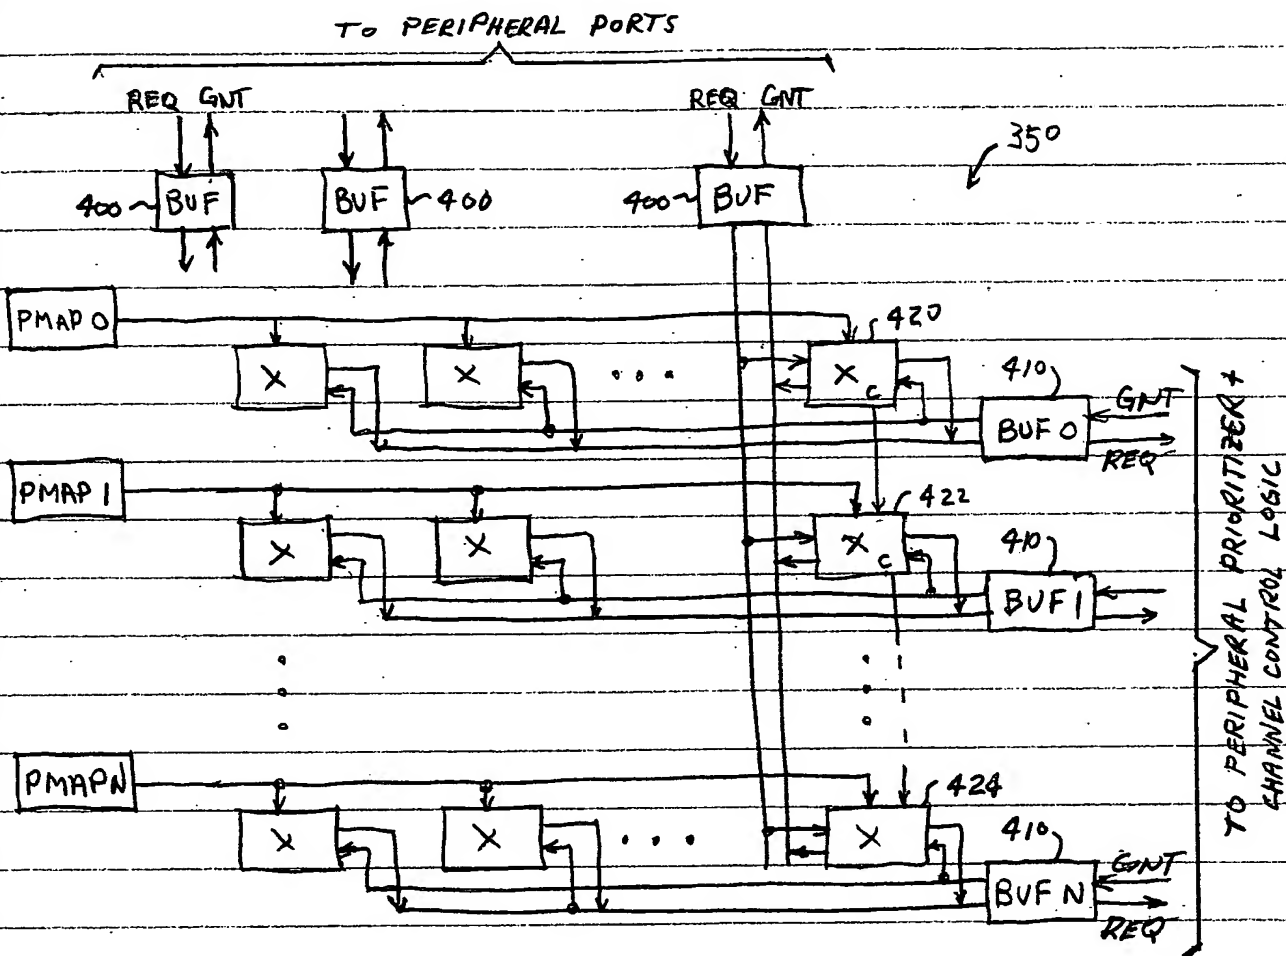 TO PERIPHERAL PORTS
REQ GNT
REQ GNT
350
400 BUF
BUF 400
400 BUF
PMAP 0
420
X
X
X
C
410
GNT
BUF 0
REQ
PMAP 1
422
X
X
X
C
410
BUF 1
PMAP N
424
X
X
X
410
GNT
BUF N
REQ
TO PERIPHERAL PRIORITIZER +
CHANNEL CONTROL LOGIC